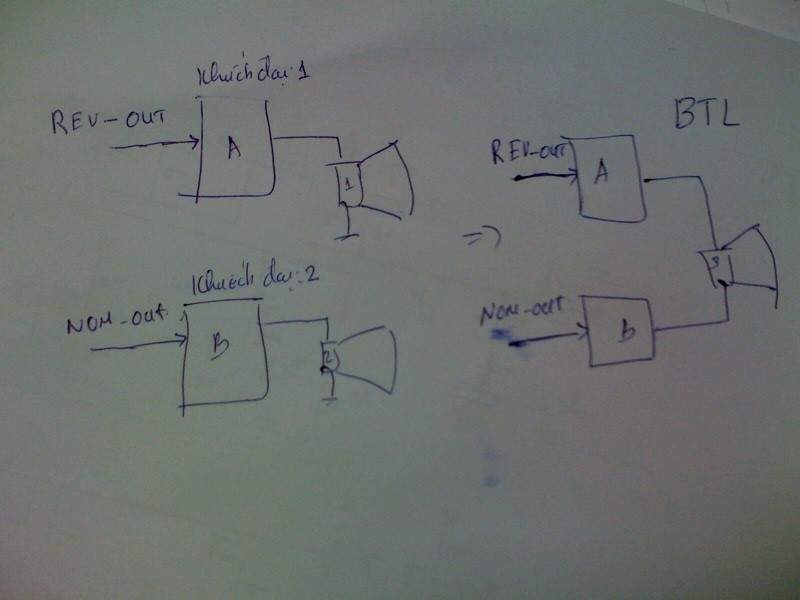 Khuếch đại: 1
REV-OUT
A
1
Khuếch đại: 2
NOM-OUT
B
2
=>
BTL
REV-OUT
A
3
NOM-OUT
B